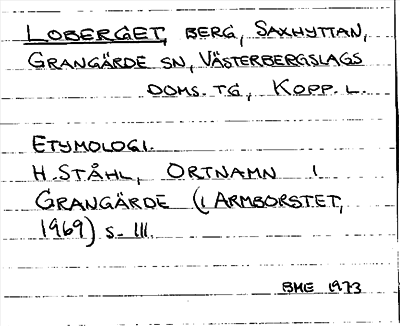 LOBERGET, BERG, SAXHYTTAN,
GRANGÄRDE SN, VÄSTERBERGSLAGS
DOMS. TG, KOPP. L.
ETYMOLOGI.
H. STÅHL, ORTNAMN I
GRANGÄRDE (I ARMBORSTET,
1969) S. 111.
BME 1973